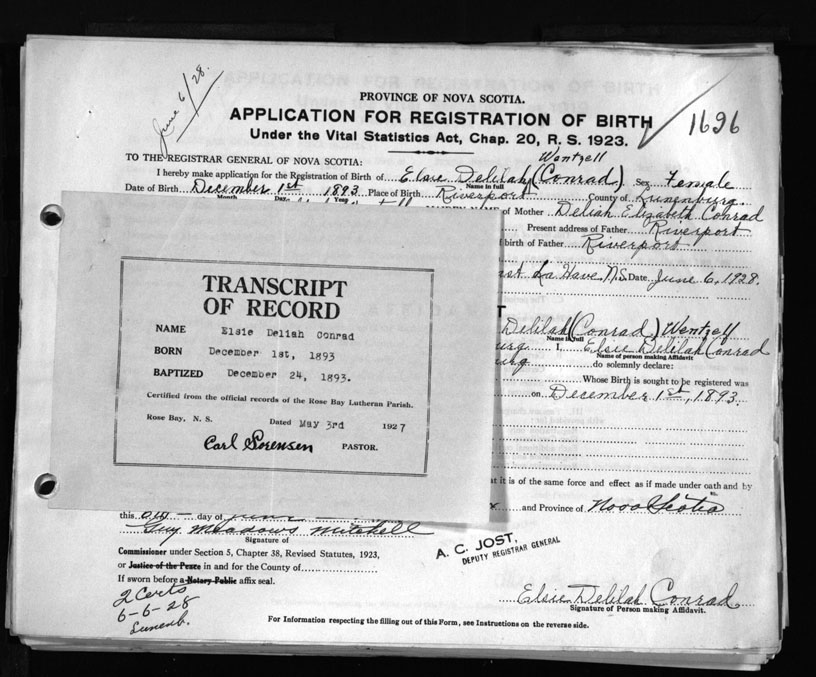 June 6/28.
PROVINCE OF NOVA SCOTIA.
APPLICATION FOR REGISTRATION OF BIRTH
1696
Under the Vital Statistics Act, Chap. 20, R. S. 1923.
TO THE REGISTRAR GENERAL OF NOVA SCOTIA:
Wentzell
I hereby make application for the Registration of Birth of Elsie Delilah (Conrad) Sex Female
Name in full
Date of Birth December 1st 1893 Place of Birth Riverport County of Lunenburg.
Month Day Year
of Mother Deliah Elizabeth Conrad
Present address of Father Riverport
birth of Father Riverport
La Have N.S. Date June 6, 1928.
TRANSCRIPT
OF RECORD
NAME Elsie Deliah Conrad
BORN December 1st, 1893
BAPTIZED December 24, 1893.
Certified from the official records of the Rose Bay Lutheran Parish.
Rose Bay, N. S. Dated May 3rd 1927
Carl Sorensen PASTOR.
Delilah (Conrad) Wentzell
Name in full
I, Elsie Delilah Conrad
Name of person making Affidavit
do solemnly declare:
Whose Birth is sought to be registered was
on December 1st, 1893.
it is of the same force and effect as if made under oath and by
and Province of Nova Scotia
this day of June
Guy Meadows Mitchell
Signature of
Commissioner under Section 5, Chapter 38, Revised Statutes, 1923,
or Justice of the Peace in and for the County of
If sworn before a Notary Public affix seal.
A. C. JOST.
DEPUTY REGISTRAR GENERAL
2 Certs
6-6-28
Lunenb.
Elsie Delilah Conrad
Signature of Person making Affidavit.
For Information respecting the filling out of this Form, see Instructions on the reverse side.